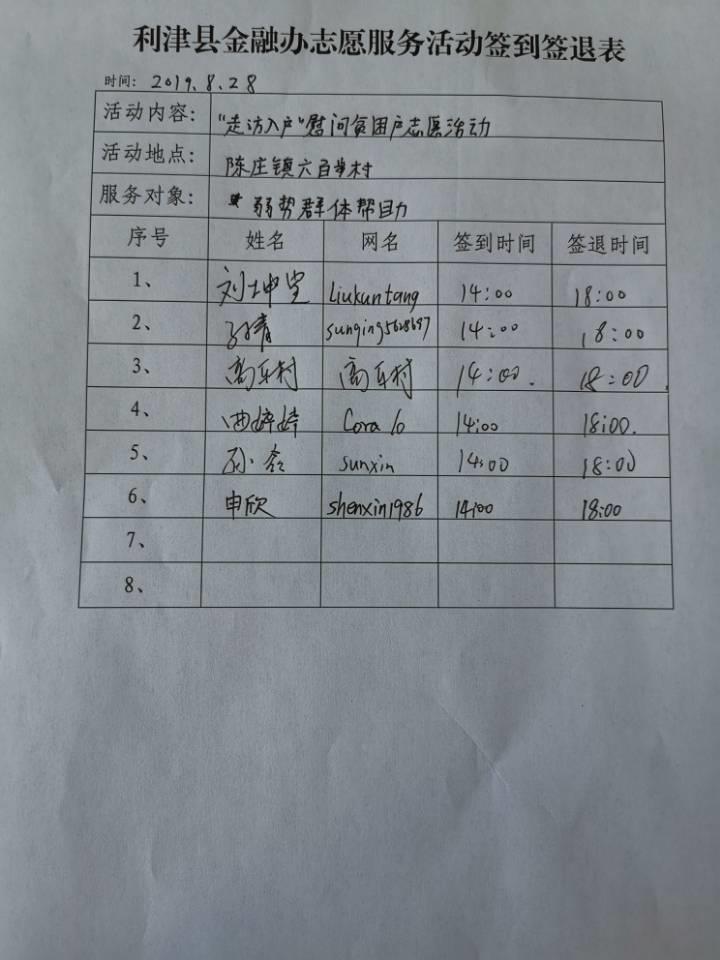 利津县金融办志愿服务活动签到签退表
时间: 2019.8.28
活动内容: "走访入户"慰问贫困户志愿活动
活动地点: 陈庄镇六百步村
服务对象: 弱势群体帮助
序号 姓名 网名 签到时间 签退时间
1、 刘坤堂 Liukuntang 14:00 18:00
2、 孙青 14:00 18:00
3、 高乐村 高乐村 14:00. 18:00.
4、 婷婷 Cora lo 14:00 18:00.
5、 sunxin 14:00 18:00
6、 申欣 shenxin1986 14:00 18:00
7、
8、